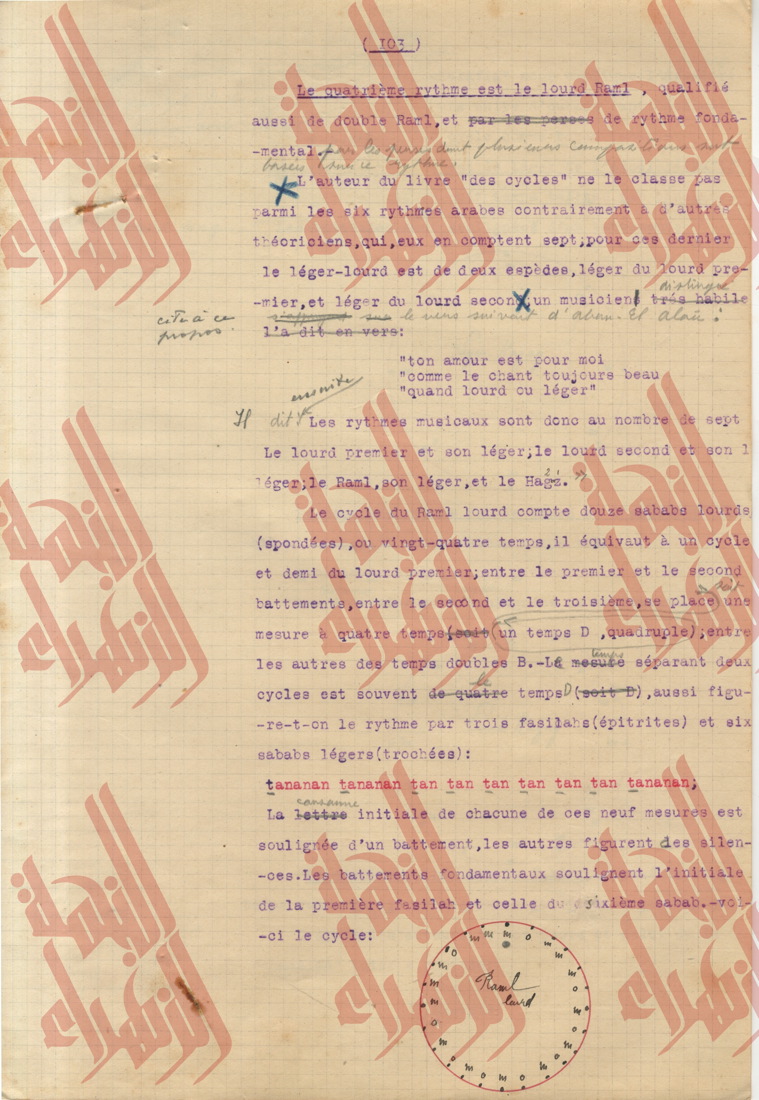 ( 103 )
Le quatrième rythme est le lourd Raml , qualifié
aussi de double Raml,et par les perses de rythme fonda-
-mental. par les perses dont plusieurs compositions sont
basées sur ce rythme.
L'auteur du livre "des cycles" ne le classe pas
parmi les six rythmes arabes contrairement à d'autres
théoriciens,qui,eux en comptent sept;pour ces dernier
le léger-lourd est de deux espèdes,léger du lourd pre-
distingué
-mier,et léger du lourd second;un musicien très habile
cite à ce
propos
le vers suivant d'Aboul El Alaü :
l'a dit en vers:
"ton amour est pour moi
"comme le chant toujours beau
"quand lourd ou léger"
ensuite
Il dit
Les rythmes musicaux sont donc au nombre de sept
Le lourd premier et son léger;le lourd second et son l
léger;le Raml,son léger,et le Hagz.
Le cycle du Raml lourd compte douze sababs lourds
(spondées),ou vingt-quatre temps,il équivaut à un cycle
et demi du lourd premier;entre le premier et le second
soit
battements,entre le second et le troisième,se place une
mesure à quatre temps(soit(un temps D ,quadruple);entre
temps
les autres des temps doubles B.-Le mesure séparant deux
le
cycles est souvent de quatre temps D (soit D),aussi figu-
-re-t-on le rythme par trois fasilahs(épitrites) et six
sababs légers(trochées):
tananan tananan tan tan tan tan tan tan tananan;
consonne
La lettre initiale de chacune de ces neuf mesures est
soulignée d'un battement,les autres figurent des silen-
-ces.Les battements fondamentaux soulignent l'initiale
de la première fasilah et celle du sixième sabab.-voi-
-ci le cycle:
Raml
lourd